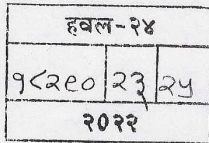 हवल-२४
१८२९० २३ २५
२०२२